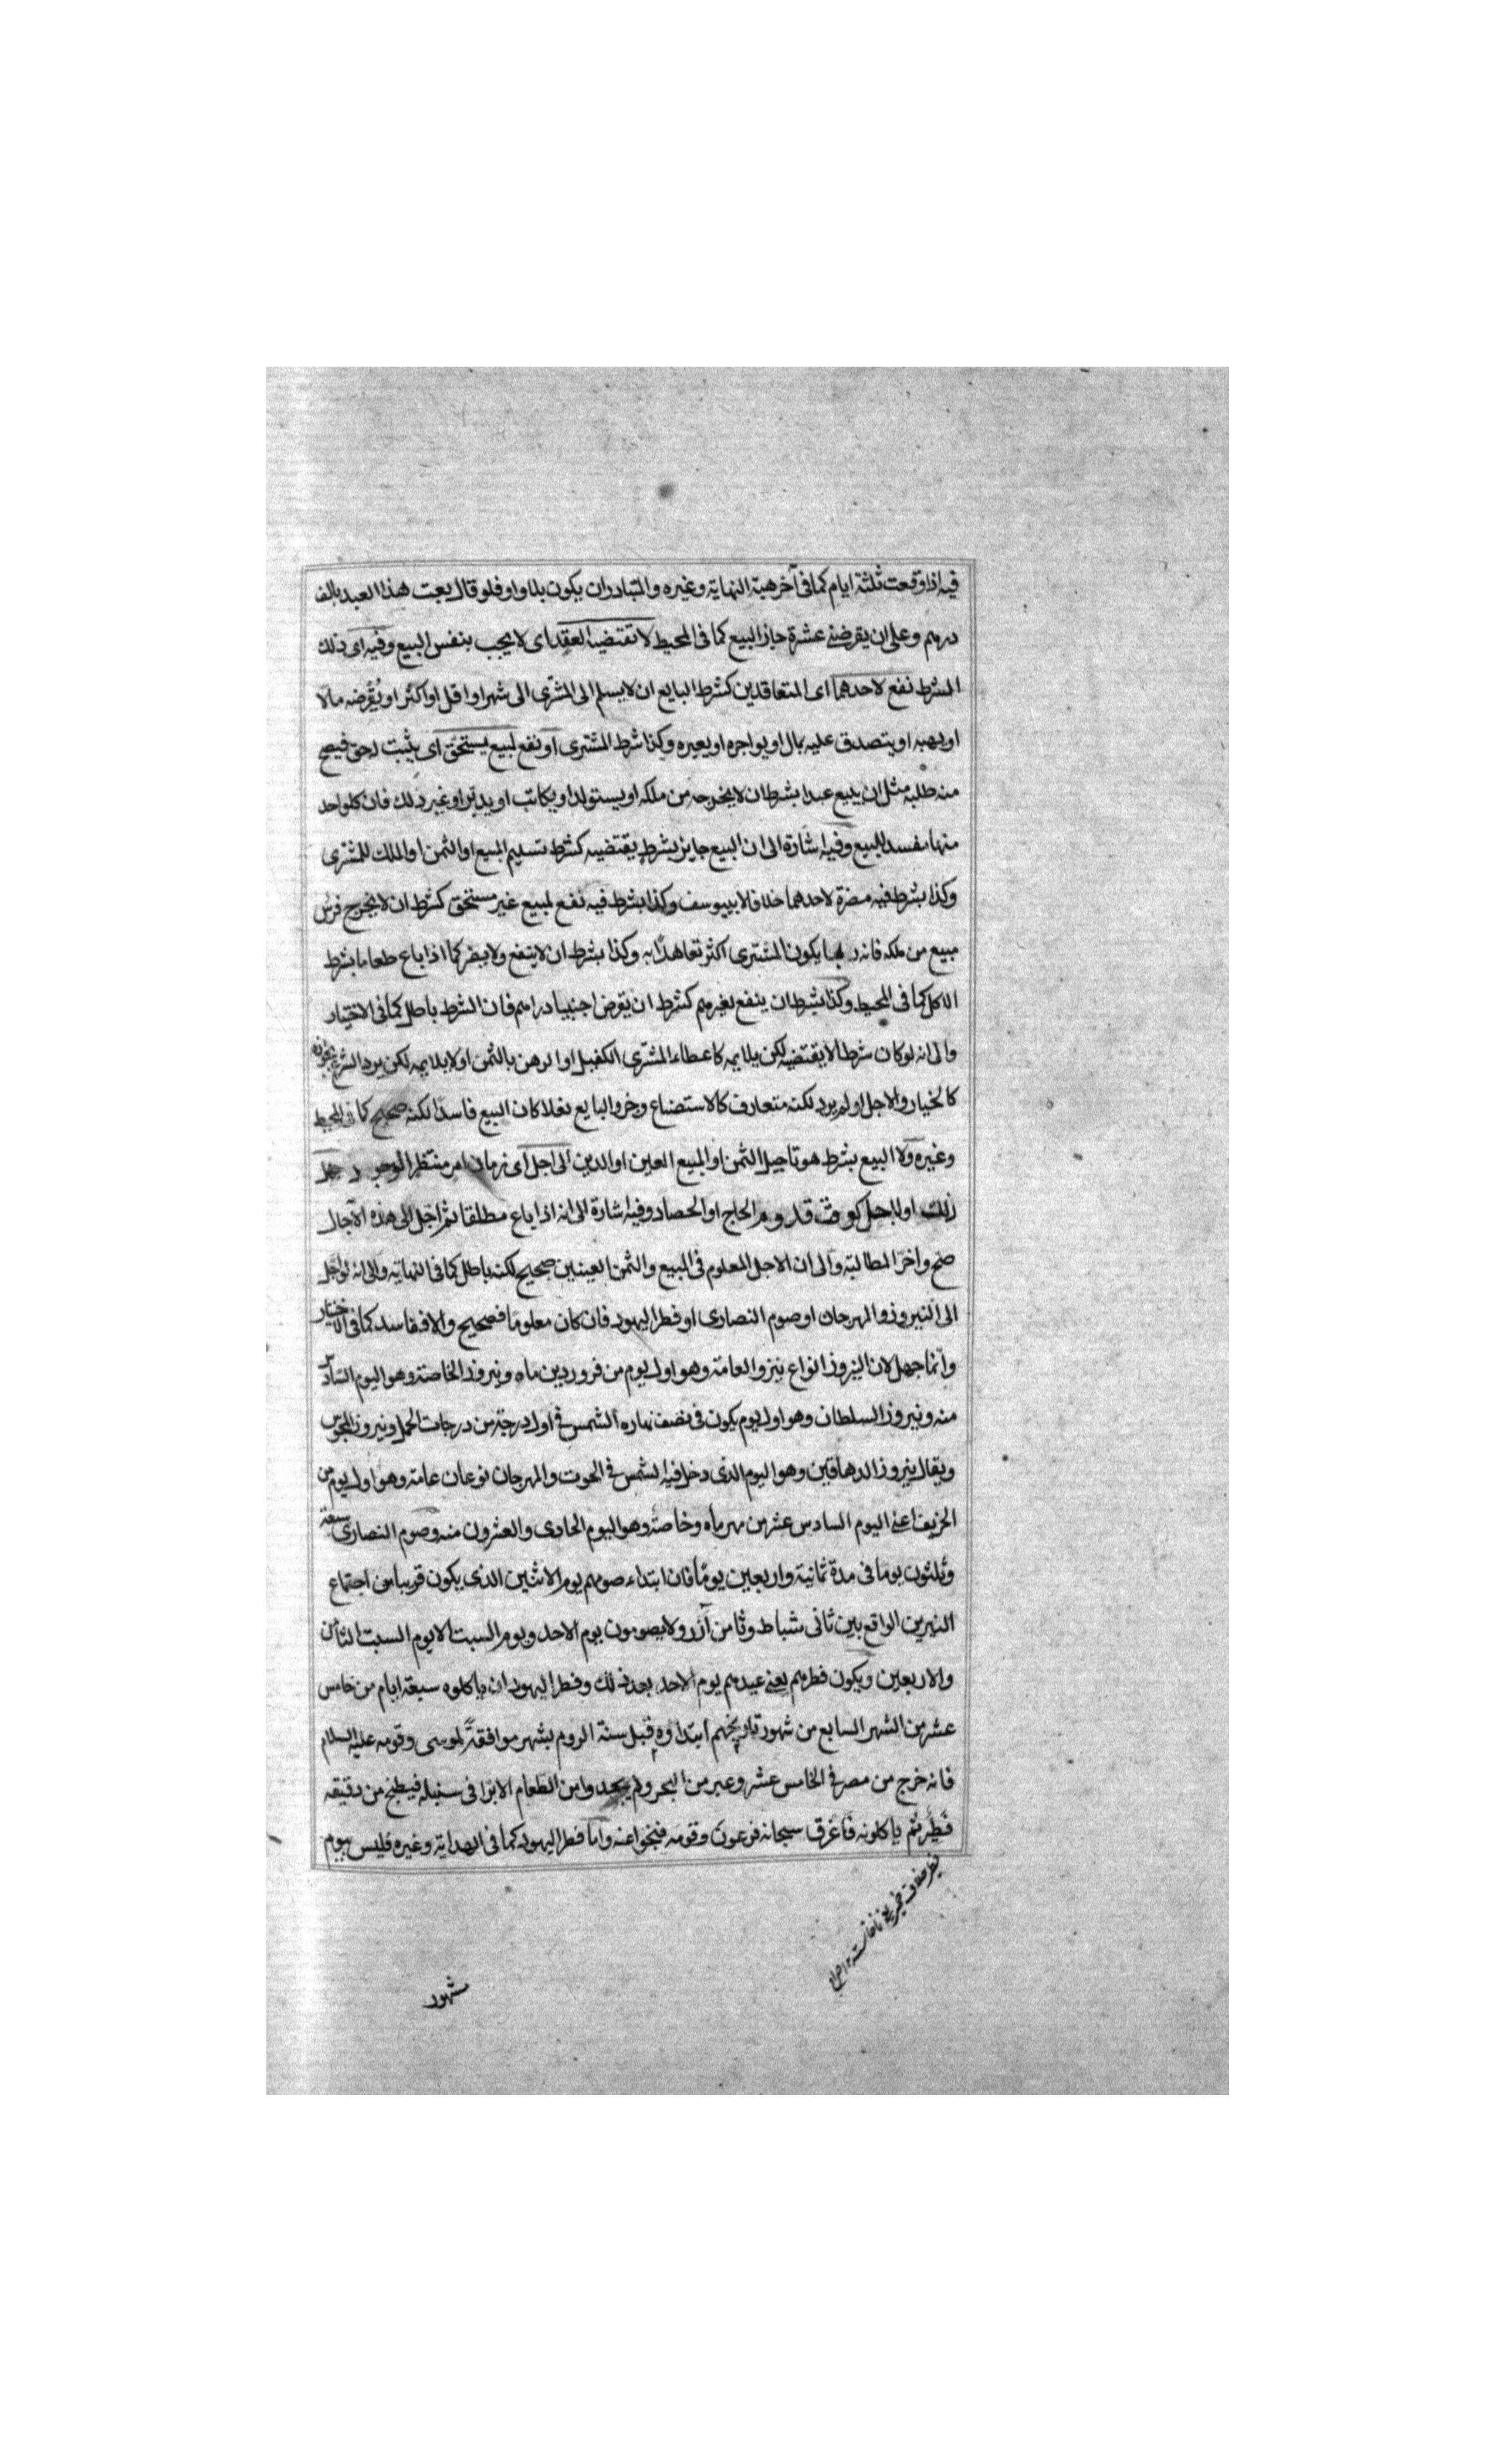 فيه اذا وقعت ثلثة ايام كما فى آخر هبة النهاية وغيره والمتبادر ان يكون بلا واو فلو قال بعت هذا العبد بالف
درهم وعلى ان يقرضنى عشرة جاز البيع كما فى المحيط لا تقتضيه العقد اى لا يجب بنفس البيع وفيه اى ذلك
الشرط نفع لاحدهما اى المتعاقدين كشرط البايع ان لا يسلم الى المشترى الى شهر او اقل او اكثر او يُقرضه مالا
او يهبه او يتصدق عليه بمال او يواجره او يعيره وكذا شرط المشترى او نفع لمبيع يستحق اى يثبت له حق فيصح
منه طلبه مثل ان يبيع عبدا بشرط ان لا يخرجه من ملكه او يستولد او يكاتب او يدبّر او غير ذلك فان كلواحد
منها مفسد للبيع وفيه اشارة الى ان البيع جايز بشرط يقتضيه كشرط تسليم المبيع او الثمن او الملك للمشترى
وكذا بشرط فيه مضرة لاحدهما خلافا لابيیوسف وكذا بشرط فيه نفع لمبيع غير مستحق كشرط ان لا يخرج فرس
مبيع من ملكه فانه ربما يكون المشترى اكثر تعاهدًا به وكذا بشرط ان لا ينفع ولا يضر كما اذا باع طعاما بشرط
الاكل كما فى المحيط وكذا بشرط ان ينفع لغيرهم كشرط ان يقرض اجنبيا دراهم فان الشرط باطل كما فى الاختيار
والى انه لو كان شرطا لا يقتضيه لكن يلايمه كاعطاء المشترى الكفيل او الرهن بالثمن او لا يلايمه لكن يرد الشرع بجوازه
كالخيار والاجل او لم يرد لكنه متعارف كالاستصناع وخرز البايع نعلا كان البيع فاسدا لكنه صحيح كما فى المحيط
وغيره ولا البيع بشرط هو تاجيل الثمن او المبيع العين او الدين الى اجل اى زمان امر منتظر الوجود جهل
ذلك اولاجل كوقت قدوم الحاج او الحصاد وفيه اشارة الى انه اذا باع مطلقا ثم اجّل الى هذه الآجال
صح واخر المطالبة والى ان الاجل المعلوم فى المبيع والثمن العينين صحيح لكنه باطل كما فى النهاية والى انه لو اجّل
الى النيروز والمهرجان او صوم النصارى او فطر اليهود فان كان معلومًا فصحيح والا ففاسد كما فى الاختيار
وانما جهل لان النيروز انواع نيروز العامة وهو اول يوم من فروردين ماه ونيروز الخاصة وهو اليوم السادس
منه ونيروز السلطان وهو اول يوم يكون فى نصف نهاره الشمس فى اول درجة من درجات الحمل ونيروز المجوس
ويقال نيروز الدهاقين وهو اليوم الذى دخل فيه الشمس فى الحوت والمهرجان نوعان عامة وهو اول يوم من
الخريف اعنى اليوم السادس عشر من مهرماه وخاصة وهو اليوم الحادى والعشرون منه وصوم النصارى سبعة
وثلثون يوما فى مدة ثمانية واربعين يومًا فان ابتداء صومهم يوم الاثنين الذى يكون قريبا من اجتماع
النيرين الواقع بين ثانى شباط وثامن آذر ولا يصومون يوم الاحد ويوم السبت الا يوم السبت الثامن
والاربعين ويكون فطرهم يعنى عيدهم يوم الاحد بعد ذلك وفطر اليهود ان ياكلوه سبعة ايام من خامس
عشر من الشهر السابع من شهور تاريخهم ابتداوه قبل سنة الروم بشهر موافقةً لموسى وقومه عليه السلام
فانه خرج من مصر فى الخامس عشر وعبر من البحر ولم يجدوا من الطعام الا بُرا فى سنبله فيطبخ من دقيقه
فطير ثم ياكلونه فاغرق سبحانه فرعون وقومه فنجوا عنه واما فطر اليهود كما فى الهداية وغيره فليس بيوم
مشهور